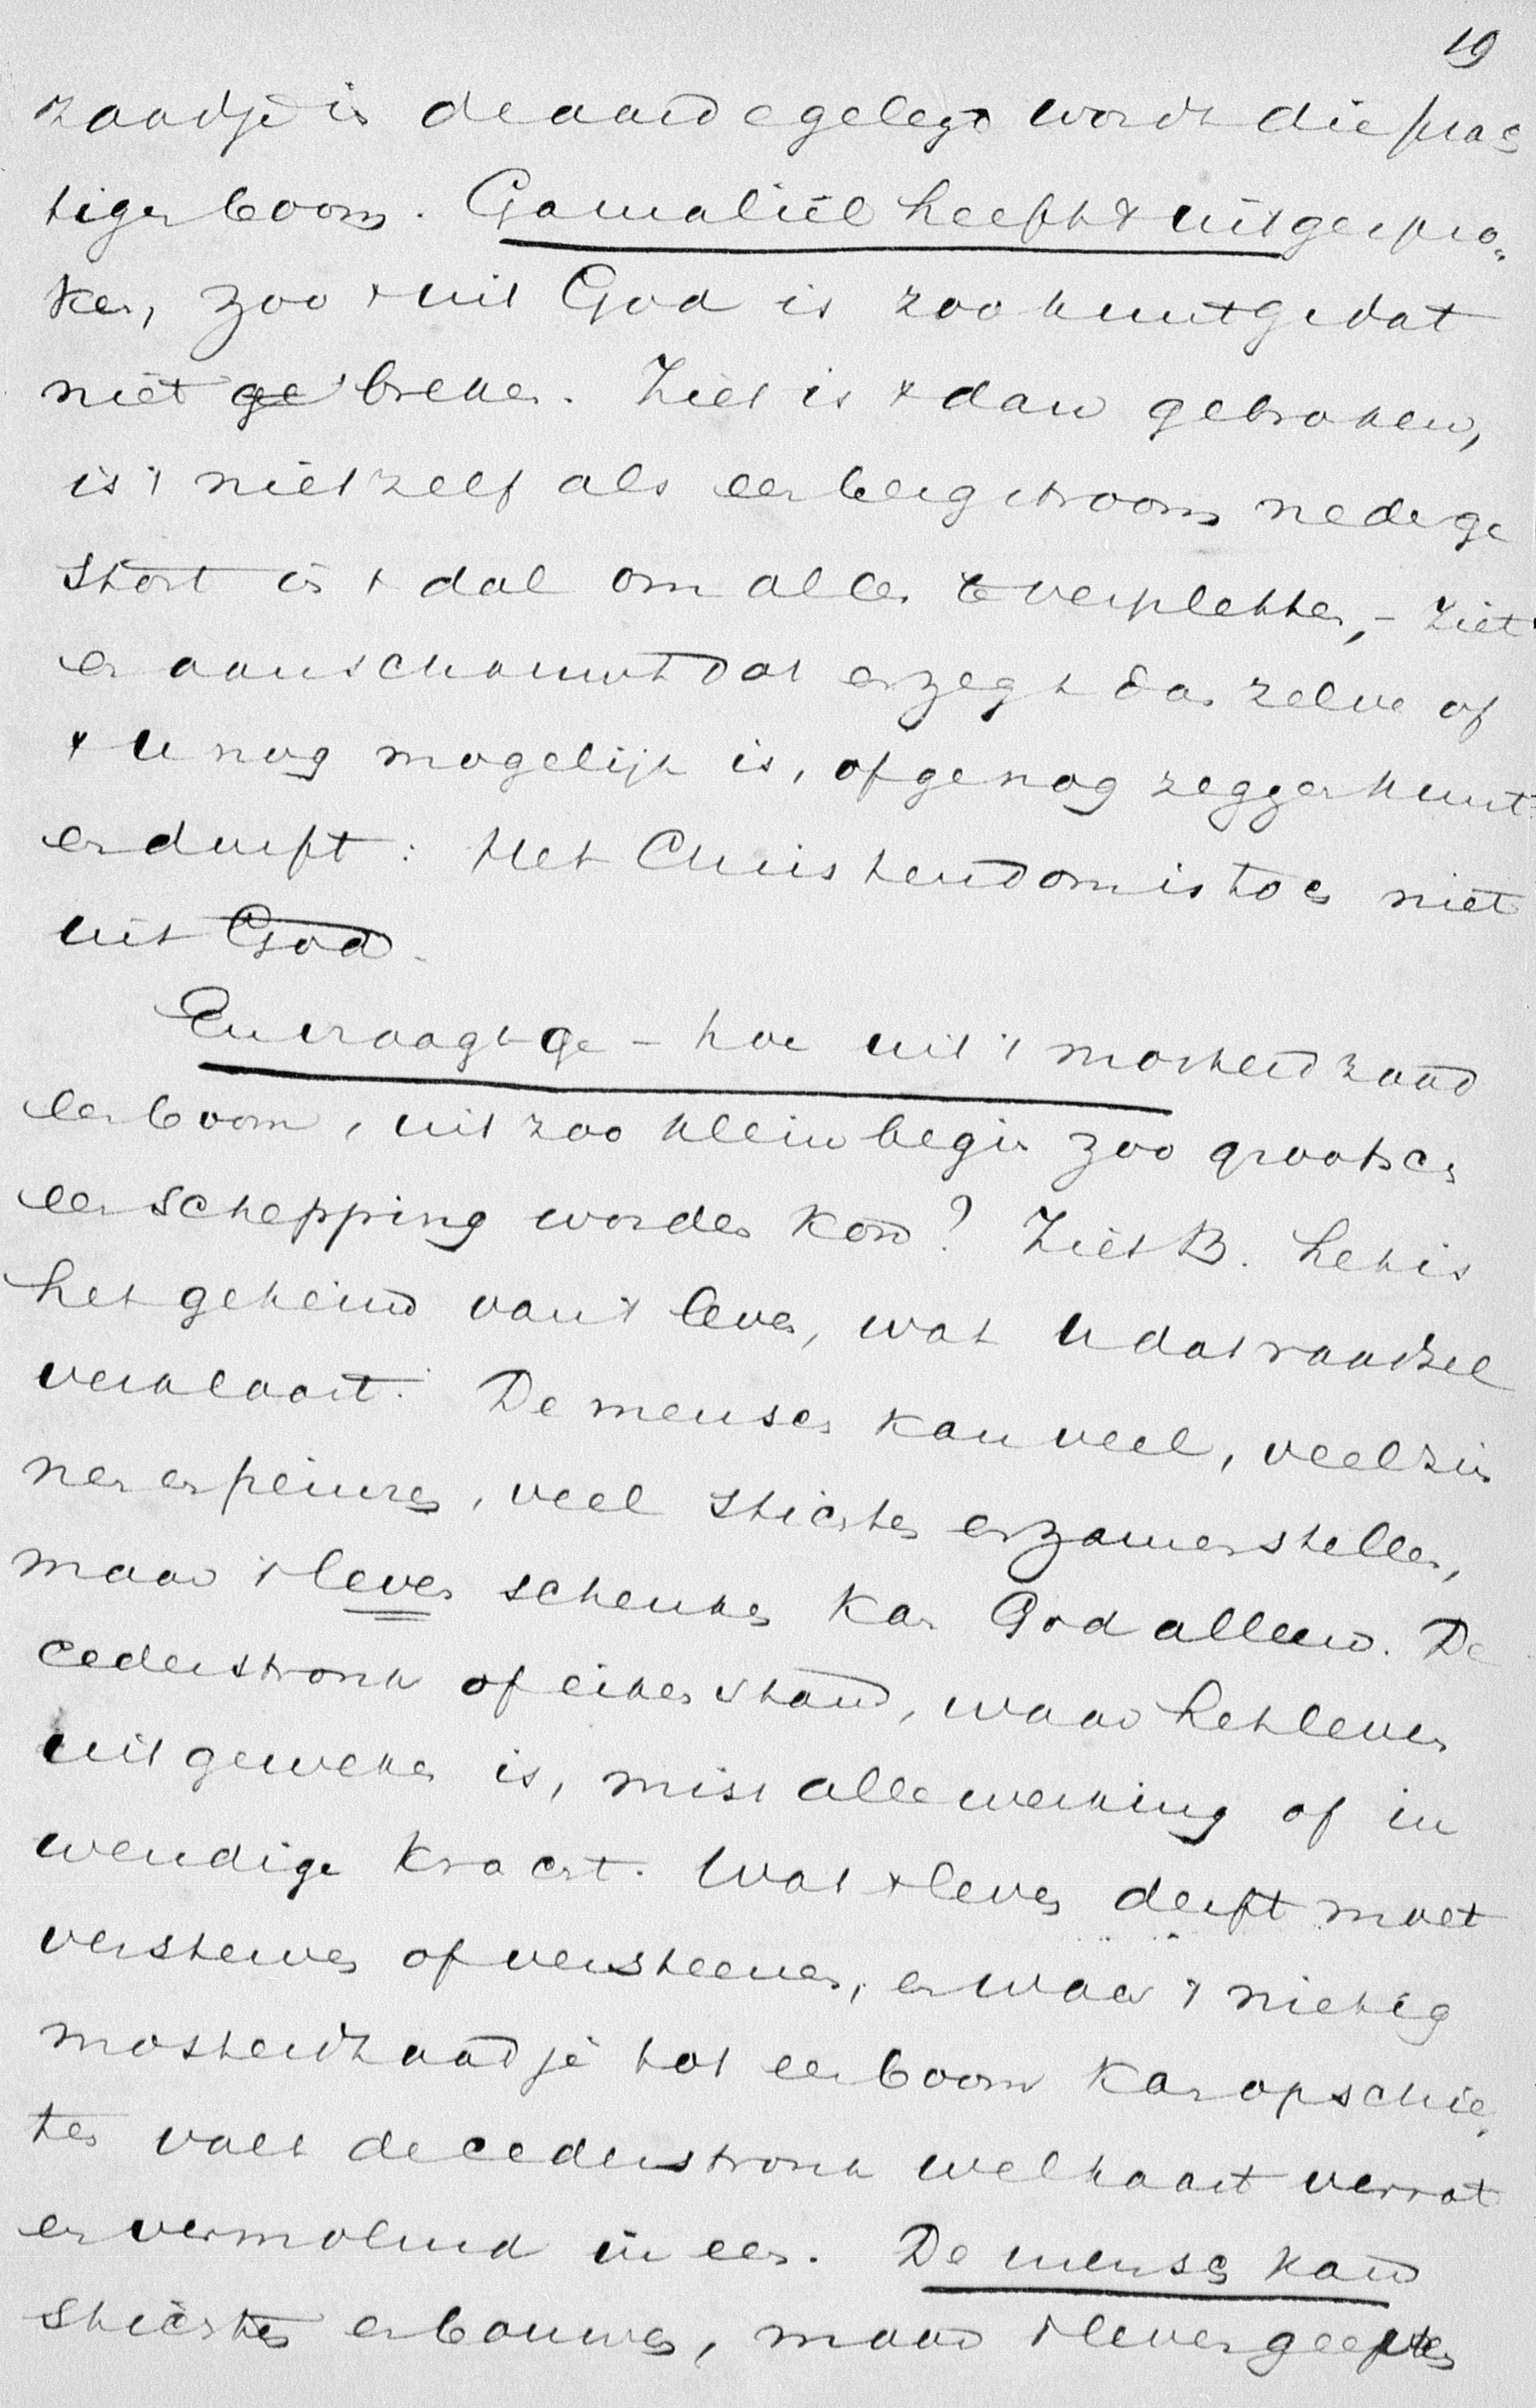 19
zaadje in de aarde gelegd wordt die prach
tige boom. Gamaliël heeft 't uitgespro„
ken, zoo 't uit God is zoo kunt ge dat
niet ge breken. Ziet is 't dan gebroken,
is 't niet zelf als een bergstroom nederge
stort in 't dal om alles te verpletten, – ziet
en aanschouwt dat en zegt dan zelve of
't U nog mogelijk is, of ge nog zeggen kunt
en durft: Het Christendom is toch niet
uit God.
En vraagt ge – hoe uit 't mosterdzaad
een boom, uit zoo klein begin zoo grootsch
een schepping worden kon? Ziet B. het is
het geheim van 't leven, wat U dat raadsel
verklaart. De mensch kan veel, veel zin
nen en peinzen, veel stichten en zamenstellen,
maar 't leven schenken kan God alleen. De
cederstronk of eikenstam, waar het leven
uit geweken is, mist alle werking of in
wendige kracht. Wat 't leven derft moet
versterven of versteenen, en waar 't nietig
mosterdzaadje tot een boom kan opschie„
ten valt de cederstronk welhaast verrot
en vermolmd in een. De mensch kan
stichten en bouwen, maar 't leven geeft en